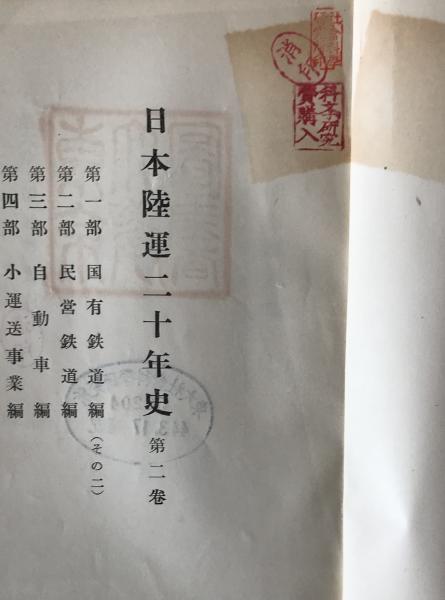 日本陸運二十年史 第二巻
第一部 国有鉄道編(その二)
第二部 民営鉄道編
第三部 自動車編
第四部 小運送事業編
科学研究
費購入